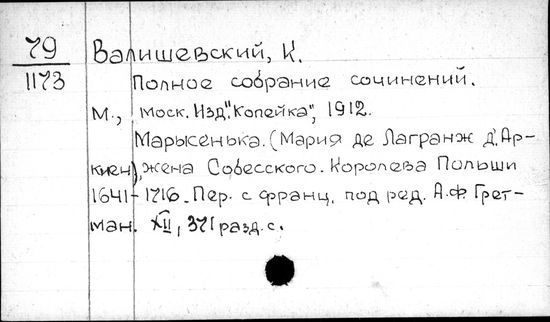 79 Валишевский, К.
1173 Полное собрание сочинений.
М., Моск. Изд. "Копейка", 1912.
Марысенька. (Мария де Лагранж д'Ар-
киен), жена Собесского. Королева Польши
1641-1716. Пер. с франц. под ред. А.Ф Грет-
ман. XII, 371 разд. с.